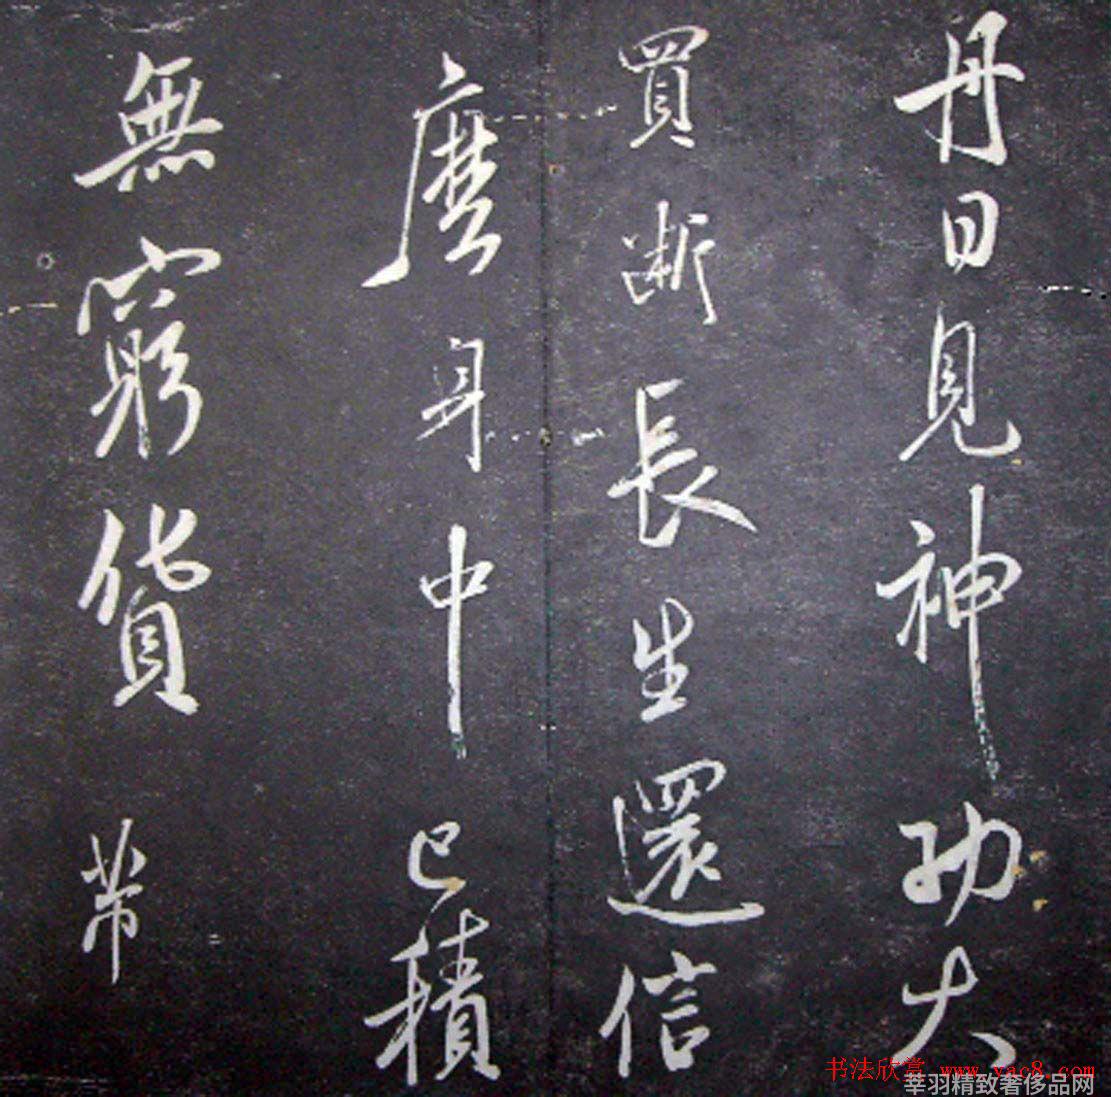 丹日見神功大
買斷長生還信
麽身中已積
無窮貨帶
书法欣赏 www.yac8.com
莘羽精致奢侈品网